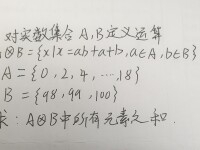 对实数集合A,B定义运算
⊗B={x|x=ab+a+b,a∈A,b∈B}
A={0,2,4,…,18}
B={98,99,100}
求:A⊗B中的所有元素之和.